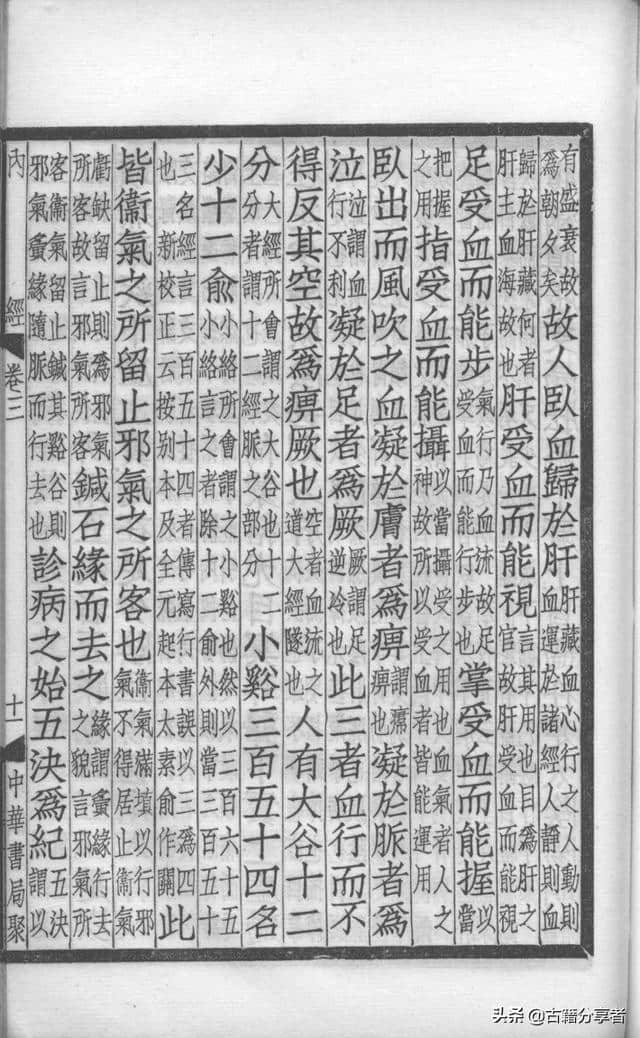 有盛衰故爲朝夕矣故人臥血歸於肝肝藏血心行之人動則血運於諸經人靜則血
歸於肝藏何者肝主血海故也肝受血而能視言其用也目爲肝之官故肝受血而能視
足受血而能步氣行乃血流故足受血而能行步也掌受血而能握以當
把握之用指受血而能攝以當攝受之用也血氣者人之神故所以受血者皆能運用
臥出而風吹之血凝於膚者爲痹謂㿏痹也凝於脈者爲
泣泣謂血行不利凝於足者爲厥厥謂足逆冷也此三者血行而不
得反其空故爲痹厥也空者血流之道大經隧也人有大谷十二
分大經所會謂之大谷也十二分者謂十二經脈之部分小谿三百五十四名
少十二俞小絡所會謂之小谿也然以三百六十五小絡言之者除十二俞外則當三百五十
三名經言三百五十四者傳寫行書誤以三爲四也 新校正云按别本及全元起本太素俞作關此
皆衞氣之所留止邪氣之所客也衞氣滿填以行邪氣不得居止衞氣
虧缺留止則爲邪氣所客故言邪氣所客鍼石緣而去之緣謂夤緣行去之貌言邪氣所
客衞氣留止鍼其谿谷則邪氣夤緣隨脈而行去也診病之始五決爲紀五決謂以
內經 卷三 十一 中華書局聚
头条 @古籍分享者